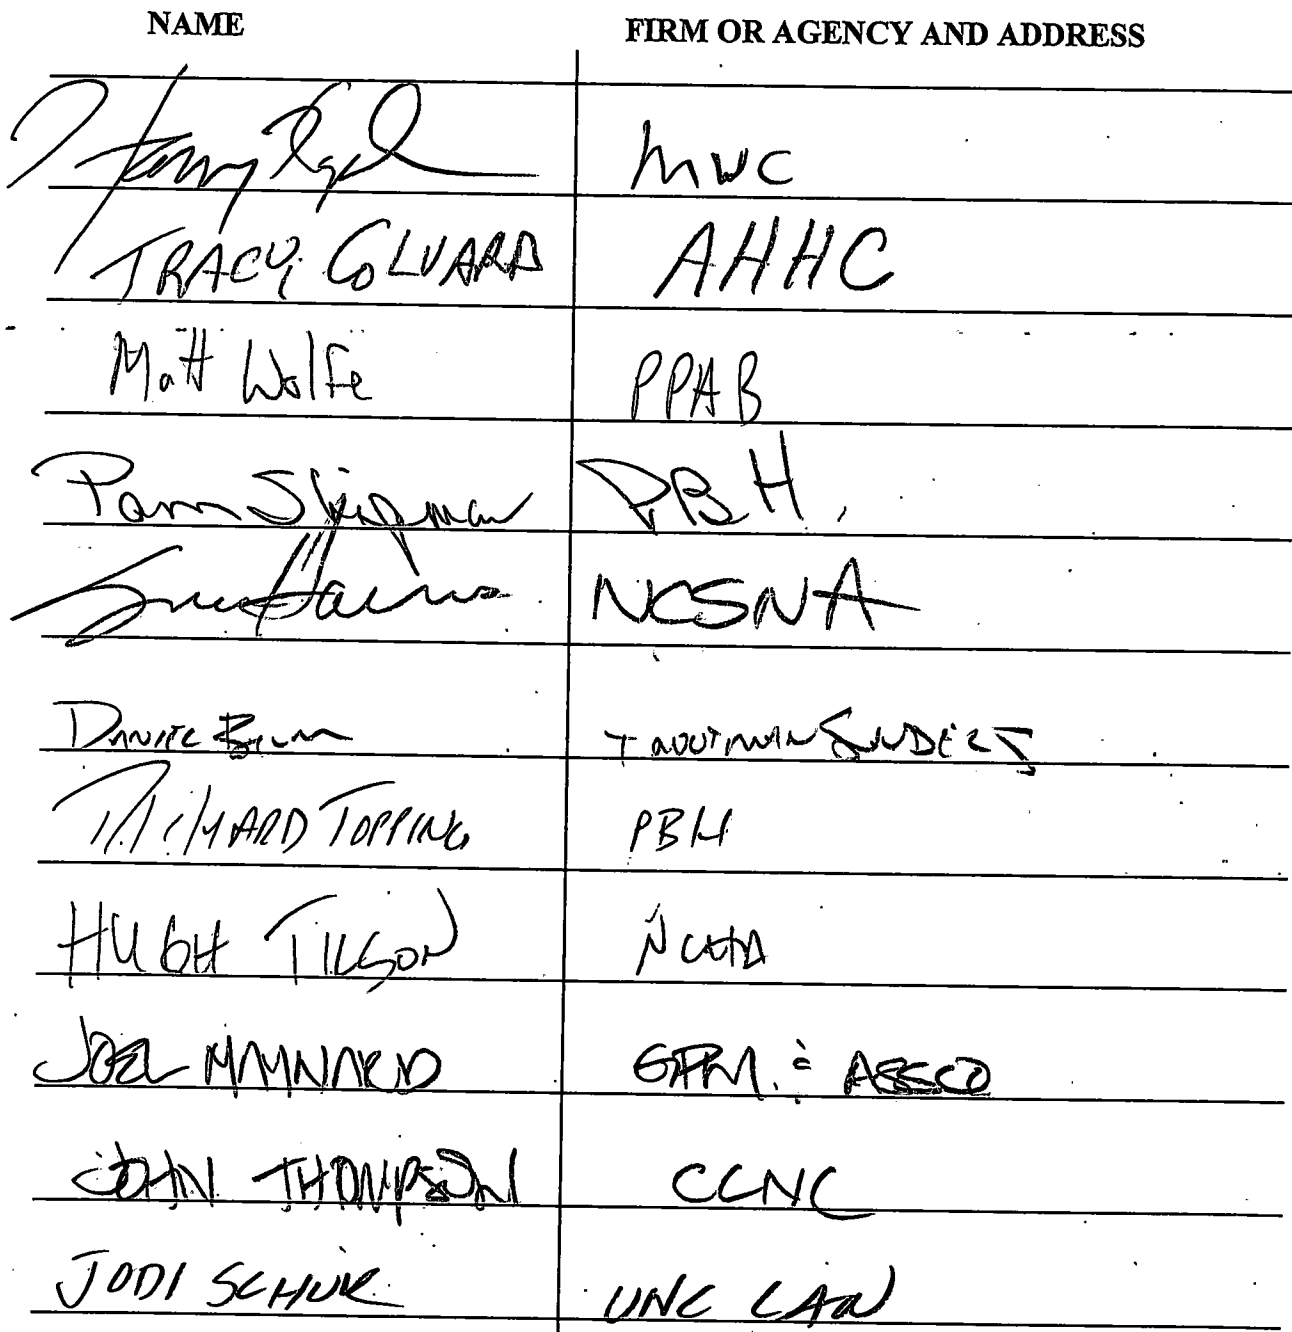 NAME FIRM OR AGENCY AND ADDRESS
MWC
TRACY COLVARD AHHC
Matt Wolfe PPAB
Pam Shipman PBH.
Sue NCSNA
TROUTMAN SANDERS
RICHARD TOPPING PBH
HUGH TILSON NCHA
JOEL MAYNARD & ASSOC
JOHN THOMPSON CCNC
JODI SCHUR UNC LAW